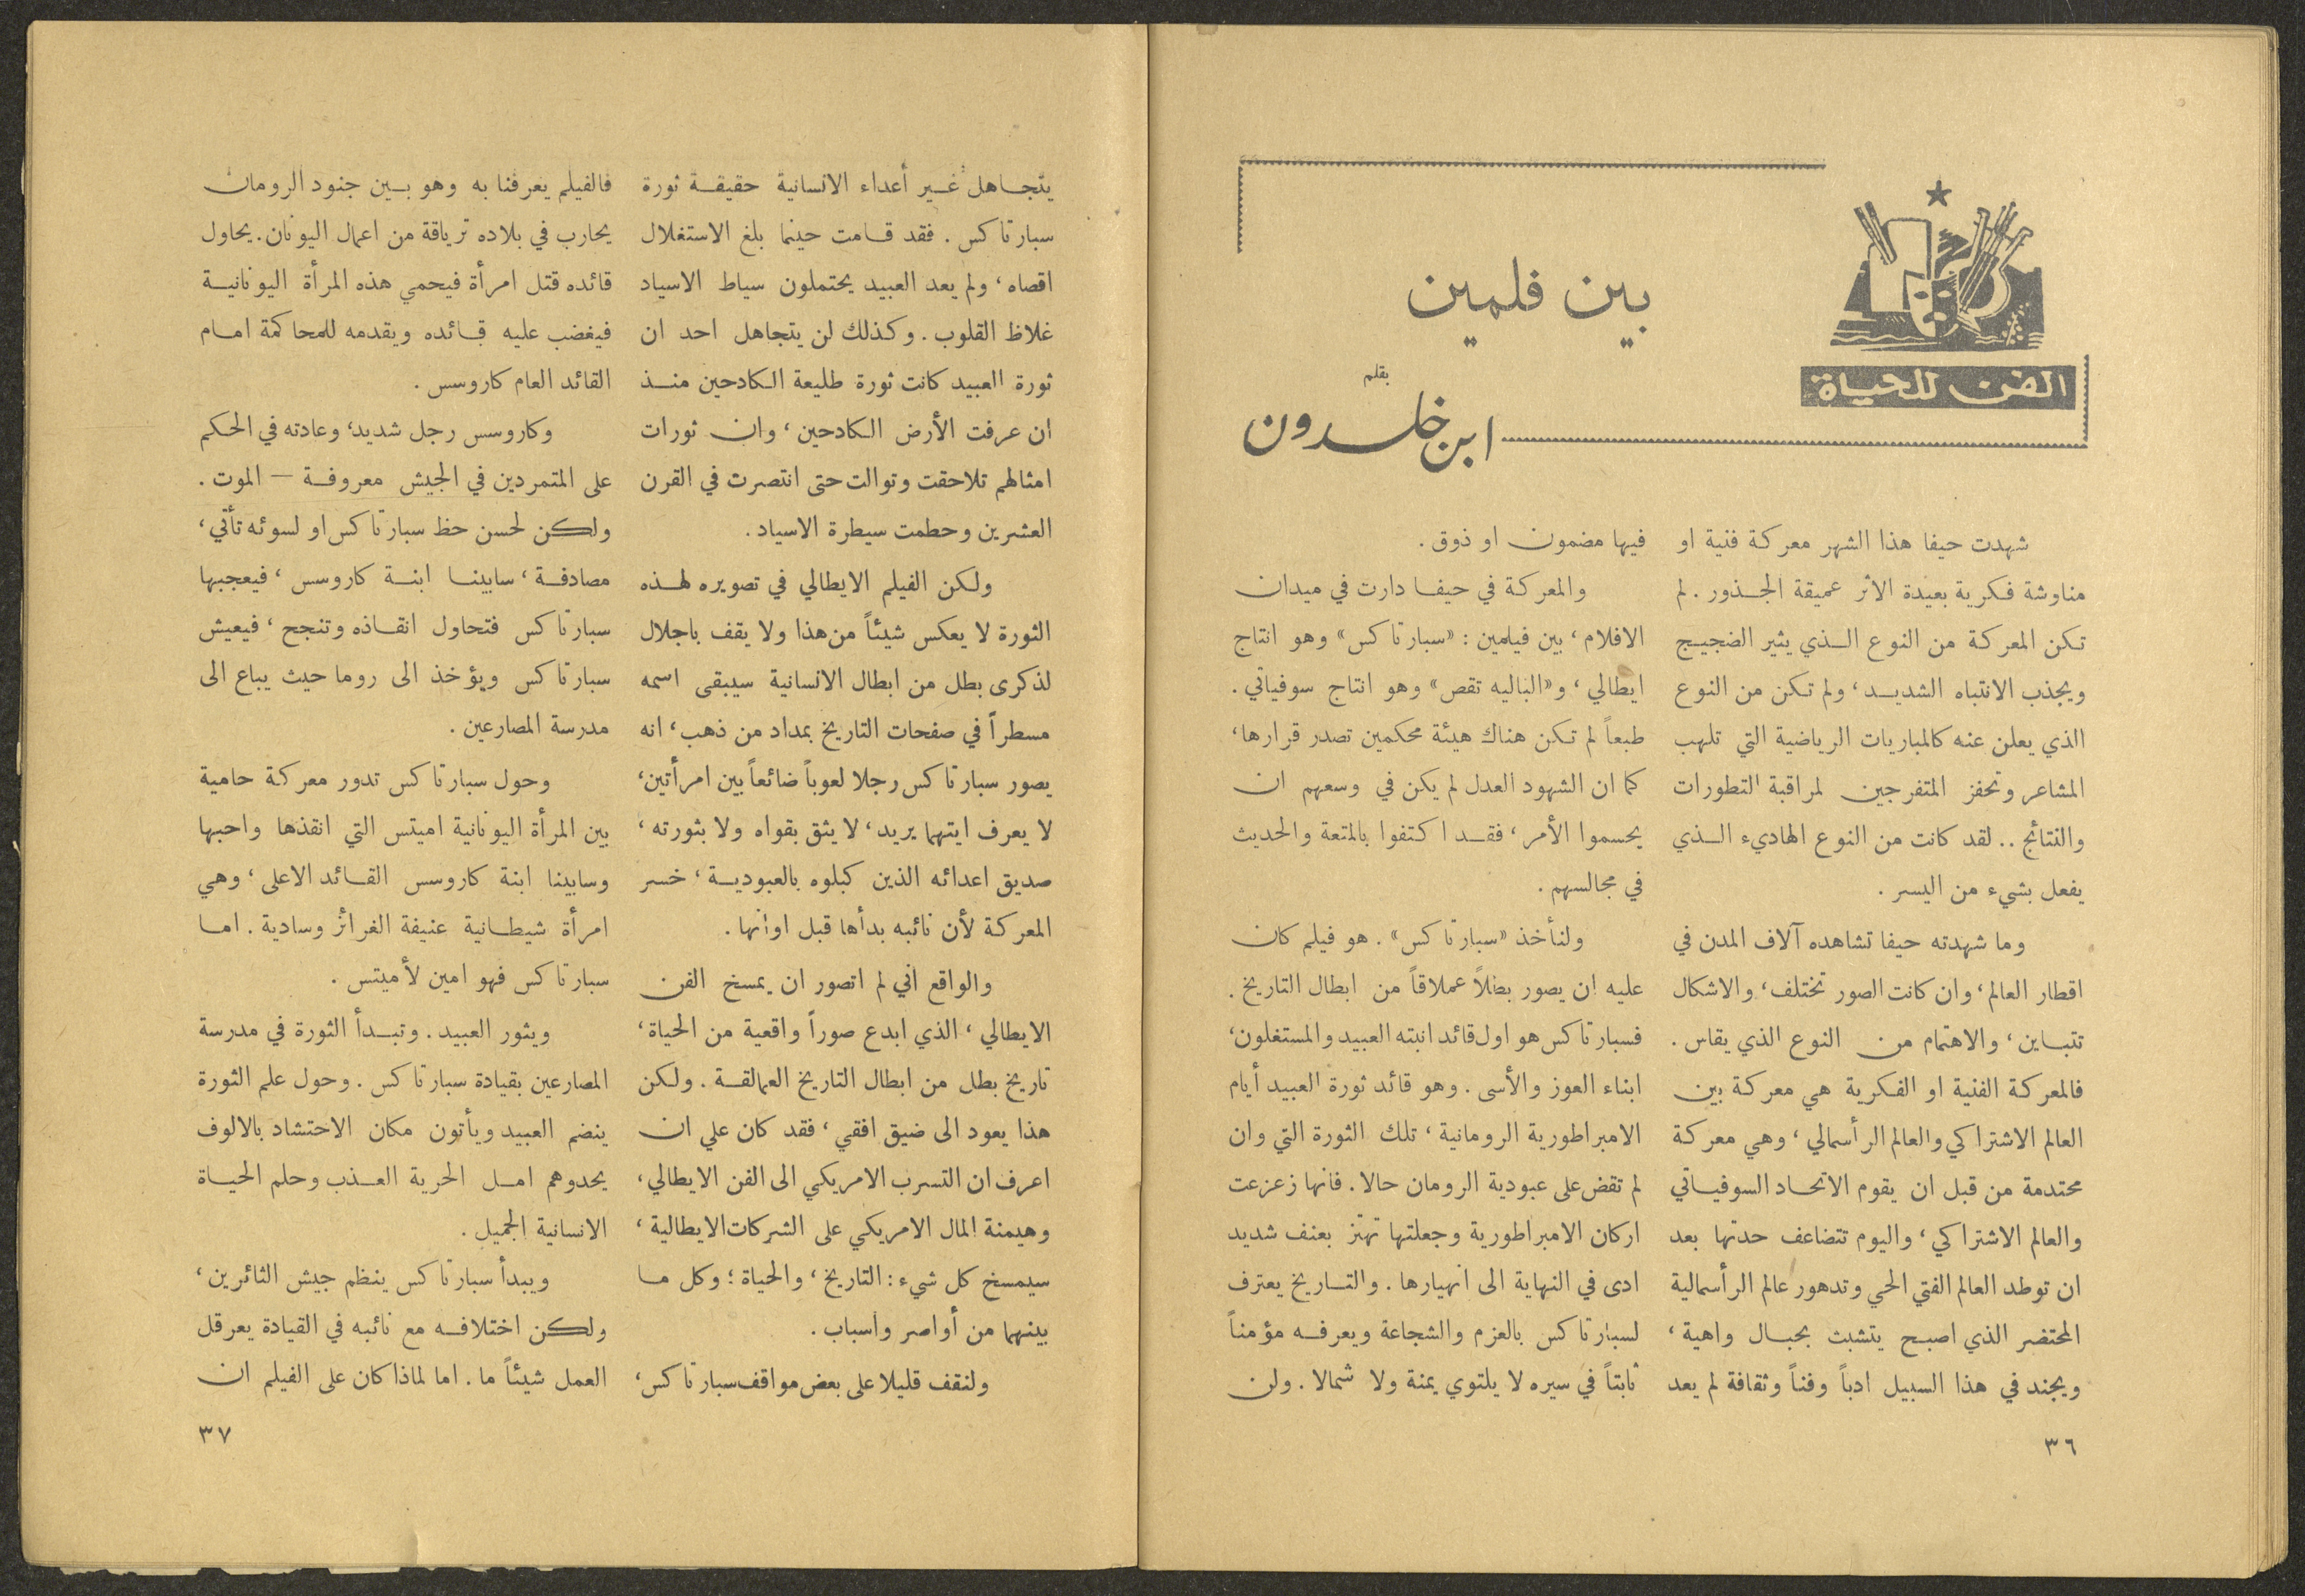 الفن للحياة
بين فلمين
بقلم
ابن خلدون
شهدت حيفا هذا الشهر معركة فنية او
مناوشة فكرية بعيدة الاثر عميقة الجذور . لم
تكن المعركة من النوع الذي يثير الضجيج
ويجذب الانتباه الشديد ، ولم تكن من النوع
الذي يعلن عنه كالمباريات الرياضية التي تلهب
المشاعر وتحفز المتفرجين لمراقبة التطورات
والنتائج .. لقد كانت من النوع الهاديء الذي
يفعل بشيء من اليسر .
وما شهدته حيفا تشاهده آلاف المدن في
اقطار العالم ، وان كانت الصور تختلف ، والاشكال
تتباين ، والاهتمام من النوع الذي يقاس .
فالمعركة الفنية او الفكرية هي معركة بين
العالم الاشتراكي والعالم الرأسمالي ، وهي معركة
محتدمة من قبل ان يقوم الاتحاد السوفياتي
والعالم الاشتراكي ، واليوم تتضاعف حدتها بعد
ان توطد العالم الفتي الحي وتدهور عالم الرأسمالية
المحتضر الذي اصبح يتشبث بحبال واهية ،
ويجند في هذا السبيل ادباً وفناً وثقافة لم يعد
فيها مضمون او ذوق .
والمعركة في حيفا دارت في ميدان
الافلام ، بين فيلمين : «سبارتاكس» وهو انتاج
ايطالي ، و«الباليه تقص» وهو انتاج سوفياتي .
طبعاً لم تكن هناك هيئة محكمين تصدر قرارها ،
كما ان الشهود العدل لم يكن في وسعهم ان
يحسموا الأمر ، فقد اكتفوا بالمتعة والحديث
في مجالسهم .
ولنأخذ «سبارتاكس» . هو فيلم كان
عليه ان يصور بطلاً عملاقاً من ابطال التاريخ .
فسبارتاكس هو اول قائد انبته العبيد والمستغلون ،
ابناء العوز والأسى . وهو قائد ثورة العبيد أيام
الامبراطورية الرومانية ، تلك الثورة التي وان
لم تقض على عبودية الرومان حالا . فانها زعزعت
اركان الامبراطورية وجعلتها تهتز بعنف شديد
ادى في النهاية الى انهيارها . والتاريخ يعترف
لسبارتاكس بالعزم والشجاعة ويعرفه مؤمناً
ثابتاً في سيره لا يلتوي يمنة ولا شمالا . ولن
٣٦
يتجاهل غير أعداء الانسانية حقيقة ثورة
سبارتاكس . فقد قامت حينما بلغ الاستغلال
اقصاه ، ولم يعد العبيد يحتملون سياط الاسياد
غلاظ القلوب . وكذلك لن يتجاهل احد ان
ثورة العبيد كانت ثورة طليعة الكادحين منذ
ان عرفت الأرض الكادحين ، وان ثورات
امثالهم تلاحقت وتوالت حتى انتصرت في القرن
العشرين وحطمت سيطرة الاسياد .
ولكن الفيلم الايطالي في تصويره لهذه
الثورة لا يعكس شيئاً من هذا ولا يقف باجلال
لذكرى بطل من ابطال الانسانية سيبقى اسمه
مسطراً في صفحات التاريخ بمداد من ذهب ، انه
يصور سبارتاكس رجلا لعوباً ضائعاً بين امرأتين ،
لا يعرف ايتهما يريد ، لا يثق بقواه ولا بثورته ،
صديق اعدائه الذين كبلوه بالعبودية ، خسر
المعركة لأن نائبه بدأها قبل اوانها .
والواقع اني لم اتصور ان يمسخ الفن
الايطالي ، الذي ابدع صوراً واقعية من الحياة ،
تاريخ بطل من ابطال التاريخ العمالقة . ولكن
هذا يعود الى ضيق افقي ، فقد كان علي ان
اعرف ان التسرب الامريكي الى الفن الايطالي ،
وهيمنة المال الامريكي على الشركات الايطالية ،
سيمسخ كل شيء : التاريخ ، والحياة ؛ وكل ما
بينهما من أواصر وأسباب .
ولنقف قليلا على بعض مواقف سبارتاكس ،
فالفيلم يعرفنا به وهو بين جنود الرومان
يحارب في بلاده ترياقة من اعمال اليونان . يحاول
قائده قتل امرأة فيحمي هذه المرأة اليونانية
فيغضب عليه قائده ويقدمه للمحاكمة امام
القائد العام كاروسس .
وكاروسس رجل شديد ، وعادته في الحكم
على المتمردين في الجيش معروفة — الموت .
ولكن لحسن حظ سبارتاكس او لسوئه تأتي ،
مصادفة ، سابينا ابنة كاروسس ، فيعجبها
سبارتاكس فتحاول انقاذه وتنجح ، فيعيش
سبارتاكس ويؤخذ الى روما حيث يباع الى
مدرسة المصارعين .
وحول سبارتاكس تدور معركة حامية
بين المرأة اليونانية اميتس التي انقذها واحبها
وسابينا ابنة كاروسس القائد الاعلى ، وهي
امرأة شيطانية عنيفة الغرائز وسادية . اما
سبارتاكس فهو امين لأميتس .
ويثور العبيد . وتبدأ الثورة في مدرسة
المصارعين بقيادة سبارتاكس . وحول علم الثورة
ينضم العبيد ويأتون مكان الاحتشاد بالالوف
يحدوهم امل الحرية العذب وحلم الحياة
الانسانية الجميل .
ويبدأ سبارتاكس ينظم جيش الثائرين ،
ولكن اختلافه مع نائبه في القيادة يعرقل
العمل شيئاً ما . اما لماذا كان على الفيلم ان
٣٧